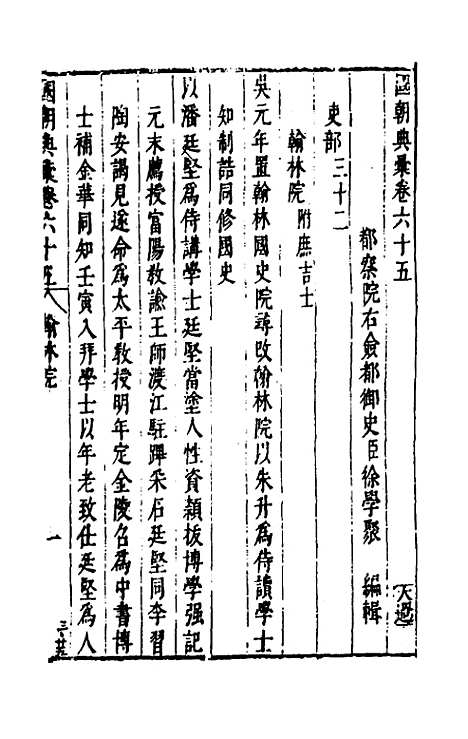 國朝典彙卷六十五
都察院右僉都御史臣徐學聚 編輯
吏部三十二
翰林院 附庶吉士
吳元年置翰林國史院尋改翰林院以朱升爲侍讀學士
知制誥同修國史
以潘廷堅爲侍講學士廷堅當塗人性資穎拔博學强記
元末薦授富陽教諭王師渡江駐蹕采石廷堅同李習
陶安謁見遂命爲太平教授明年定金陵召爲中書博
士補金華同知壬寅入拜學士以年老致仕廷堅爲人
國朝典彙卷六十五 翰林院 一